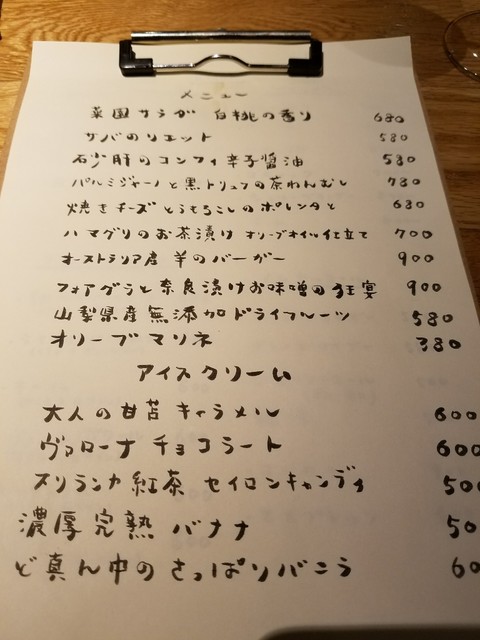 メニュー
菜園サラダ 白桃の香り 680
サバのリエット 580
砂肝のコンフィ辛子醤油 580
パルミジャーノと黒トリュフの茶わんむし 780
焼きチーズとうもろこしのポレンタと 680
ハマグリのお茶漬け オリーブオイル仕立て 700
オーストラリア産 羊のバーガー 900
フォアグラと奈良漬けお味噌の狂宴 900
山梨県産無添加ドライフルーツ 580
オリーブマリネ 380
アイスクリーム
大人の甘苦キャラメル 600
ヴァローナチョコラート 600
スリランカ紅茶 セイロンキャンディ 500
濃厚完熟バナナ 50
ど真ん中のさっぱりバニラ 60